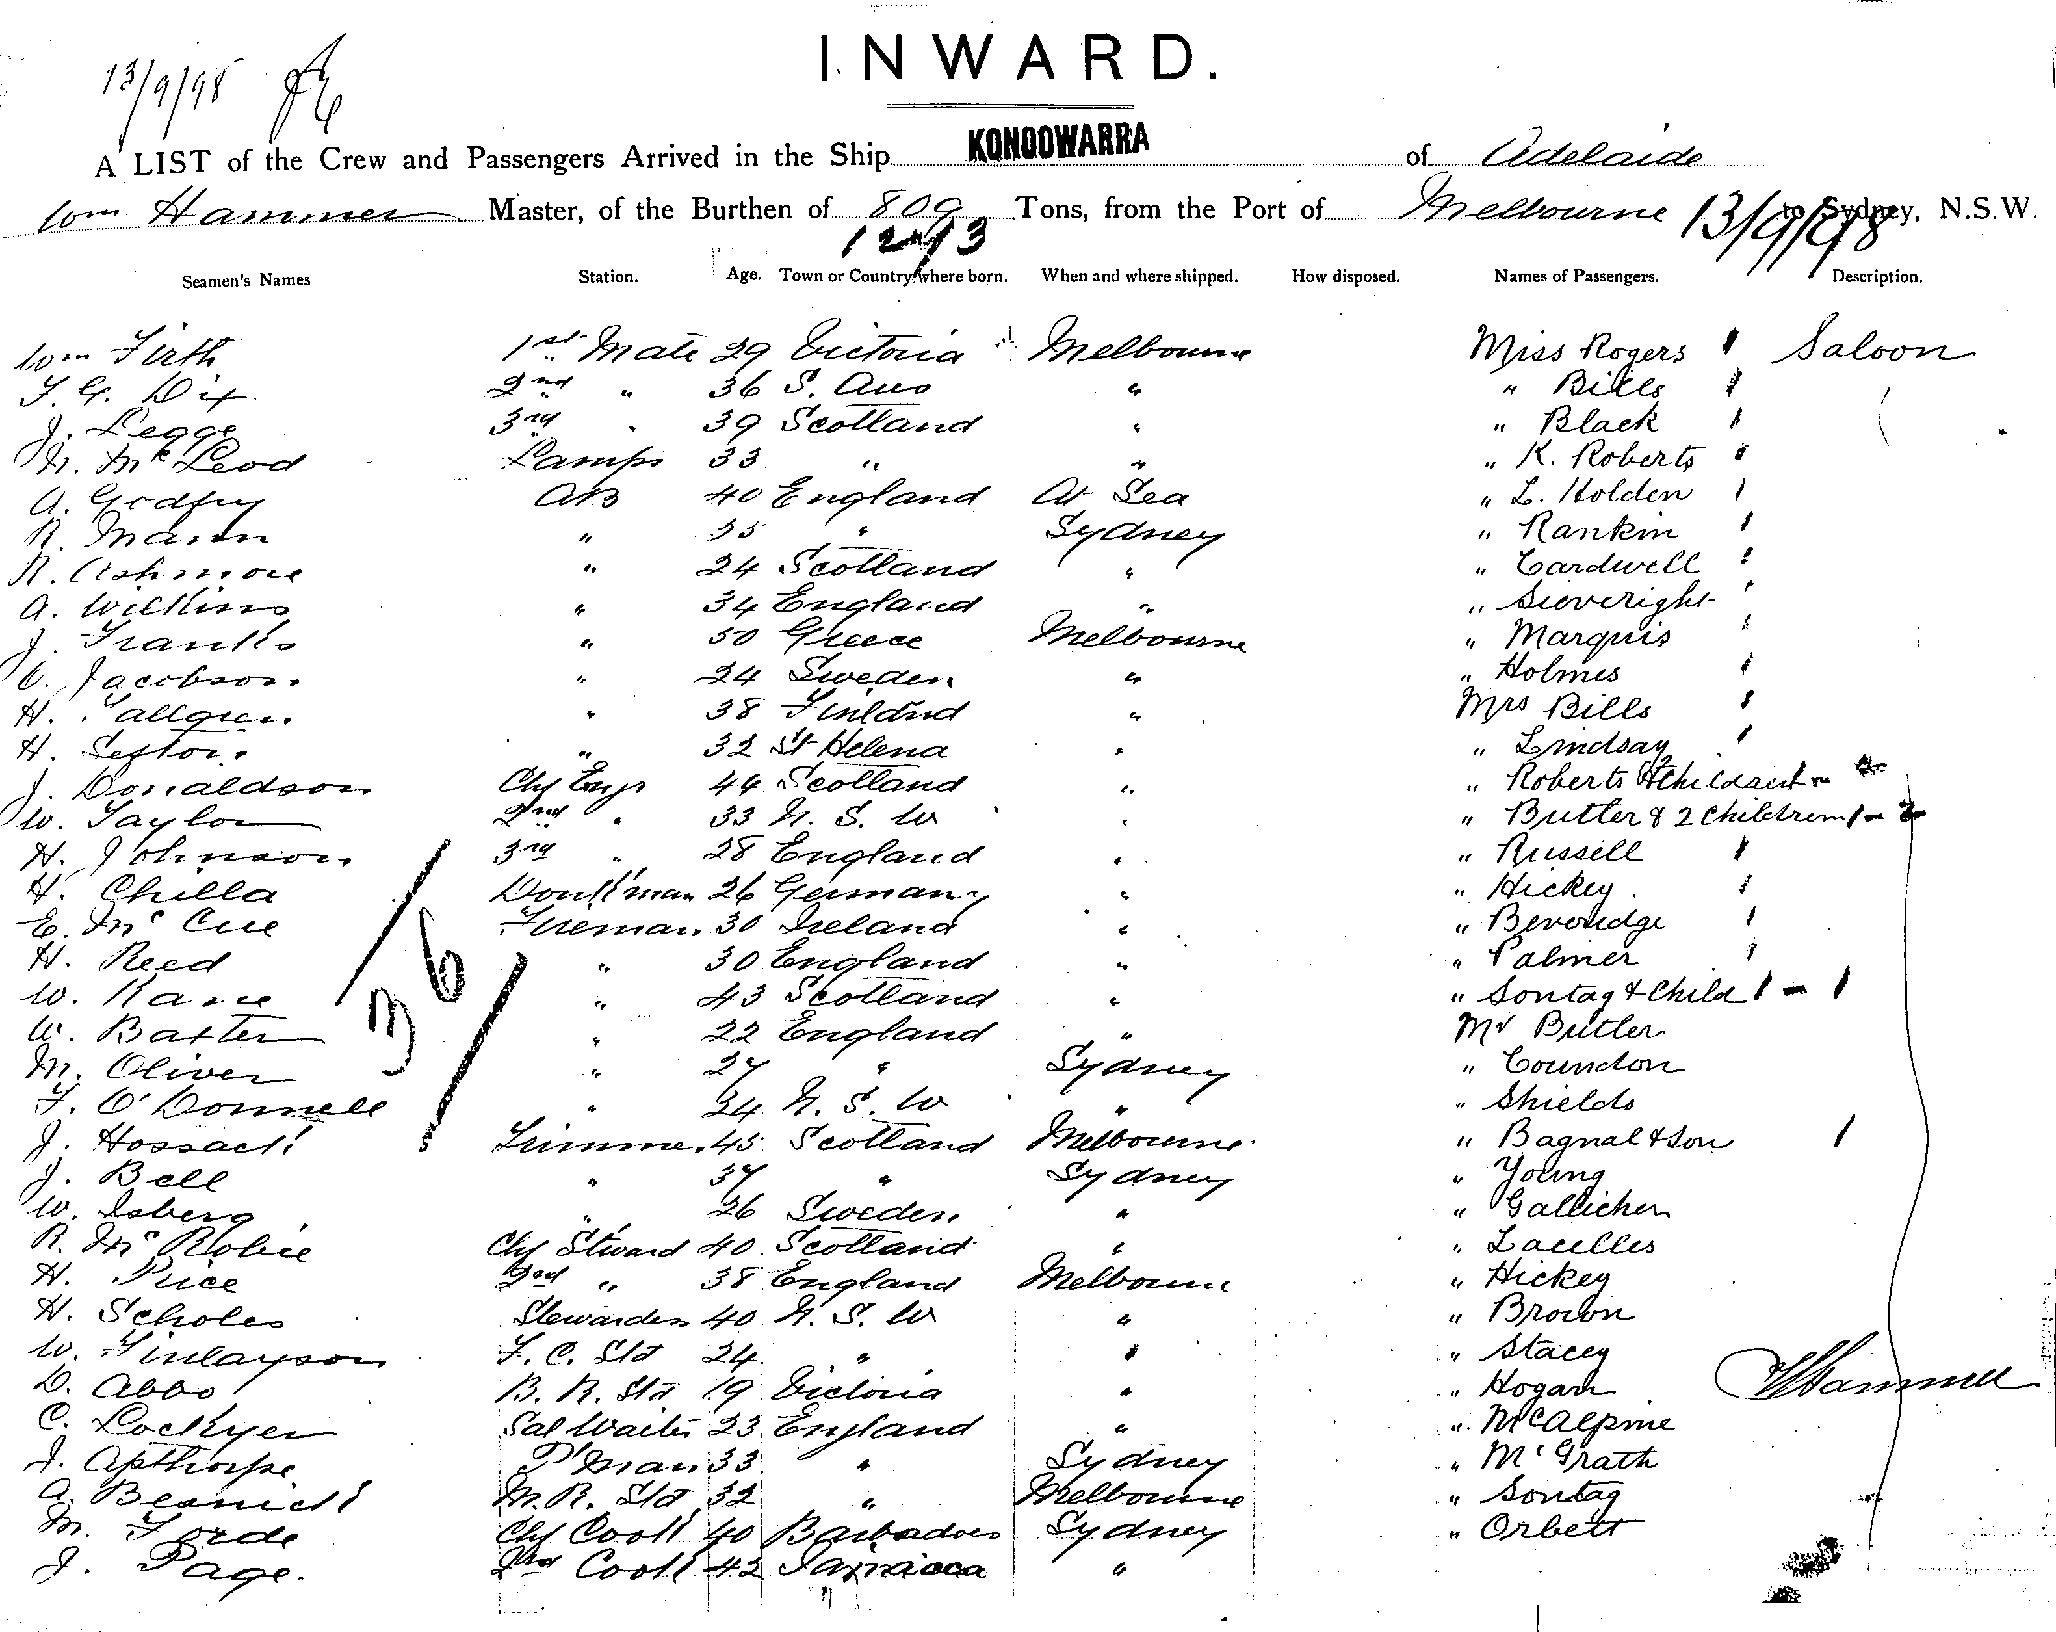 INWARD.
13/9/98
A LIST of the Crew and Passengers Arrived in the Ship KONOOWARRA of Adelaide
Wm Hammer Master, of the Burthen of 809 Tons, from the Port of Melbourne to Sydney, N.S.W.
13/9/98
Seamen's Names Station. Age. Town or Country where born. When and where shipped. How disposed. Names of Passengers. Description.
Wm Firth 1st Mate 29 Victoria Melbourne Miss Rogers 1 Saloon
T. G. Dix 2nd " 36 S. Aus " " Bills 1
J. Legge 3rd " 39 Scotland " " Black 1
N. McLeod Lamps 33 " " " K. Roberts 1
A. Godfrey AB 40 England At Sea " L. Holden 1
R. Mann " 35 " Sydney " Rankin 1
R. Ashmore " 24 Scotland " " Cardwell 1
A. Wilkins " 34 England " " Sieveright 1
J. Franks " 50 Greece Melbourne " Marquis 1
C. Jacobson " 24 Sweden " " Holmes 1
H. Tallgren " 38 Finland " Mrs Bills 1
H. Sefton " 32 St Helena " " Lindsay 1
J. Donaldson Chf Engr 44 Scotland " " Roberts
W. Taylor 2nd " 33 N. S. W " " Butler & 2 Children 1 - 2
H. Johnson 3rd " 28 England " " Russell 1
H. Chilla Donk'man 26 Germany " " Hickey 1
E. McCue Fireman 30 Ireland " " Beveridge 1
H. Reed " 30 England " " Palmer 1
W. Kane " 43 Scotland " " Sontag & Child 1 - 1
W. Baxter " 22 England " Mr Butler
M. Oliver " 27 " Sydney " Coundon
F. O'Donnell " 24 N. S. W " " Shields
J. Hossack Trimmer 45 Scotland Melbourne " Bagnal & Son 1
J. Bell " 37 " Sydney " Young
W. Isberg " 26 Sweden " " Gallichen
R. McRobie Chf Steward 40 Scotland " " Lacelles
H. Price 2nd " 38 England Melbourne " Hickey
H. Scholes Stewardess 40 N. S. W " " Brown
W. Finlayson F. C. Std 24 " " " Stacey
D. Abbo B. R. Std 19 Victoria " " Hogan
C. Lockyer Sal Waiter 23 England " " McAlpine
J. Apthorpe P'man 33 " Sydney " McGrath
A. Besnick M. R. Std 32 " Melbourne " Sontag
M. Forde Chf Cook 40 Barbadoes Sydney " Orbett
J. Page. 2nd Cook 42 Jamaica "
36